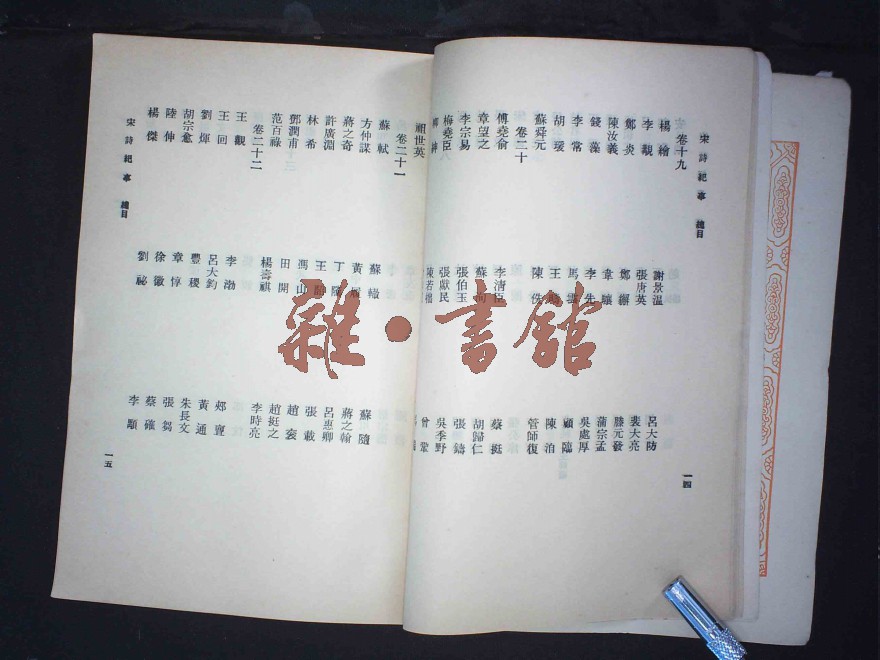 宋詩紀事 總目
一四
卷十九
楊繪 謝景溫 呂大防
李覯 張唐英 裴大亮
鄭炎 鄭獬 滕元發
陳汝義 韋驤 蒲宗孟
錢藻 李先 吳處厚
李常 馬雲 顧臨
胡公瑗 王 陳泊
蘇舜元 陳侁 管師復
卷二十
傅堯俞 李清臣 蔡挺
章望之 蘇洵 胡歸仁
李宗易 張伯玉 張鑄
梅堯臣 張獻民 吳季野
紳 陳若拙 曾鞏
祖世英
卷二十一
蘇軾 蘇轍 蘇隨
方仲謀 黃履 蔣之翰
蔣之奇 丁隲 呂惠卿
許廣淵 王 張載
林希 馮山 趙袞
鄧潤甫 田開 趙挺之
范百祿 楊壽祺 李時亮
卷二十二
王觀 李渤 郟亶
王回 呂大鈞 黃通
劉煇 豐稷 朱長文
胡宗愈 章惇 張芻
陸伸 徐徽 蔡確
楊傑 劉祕 李顒
宋詩紀事 總目
一五
雜·書館